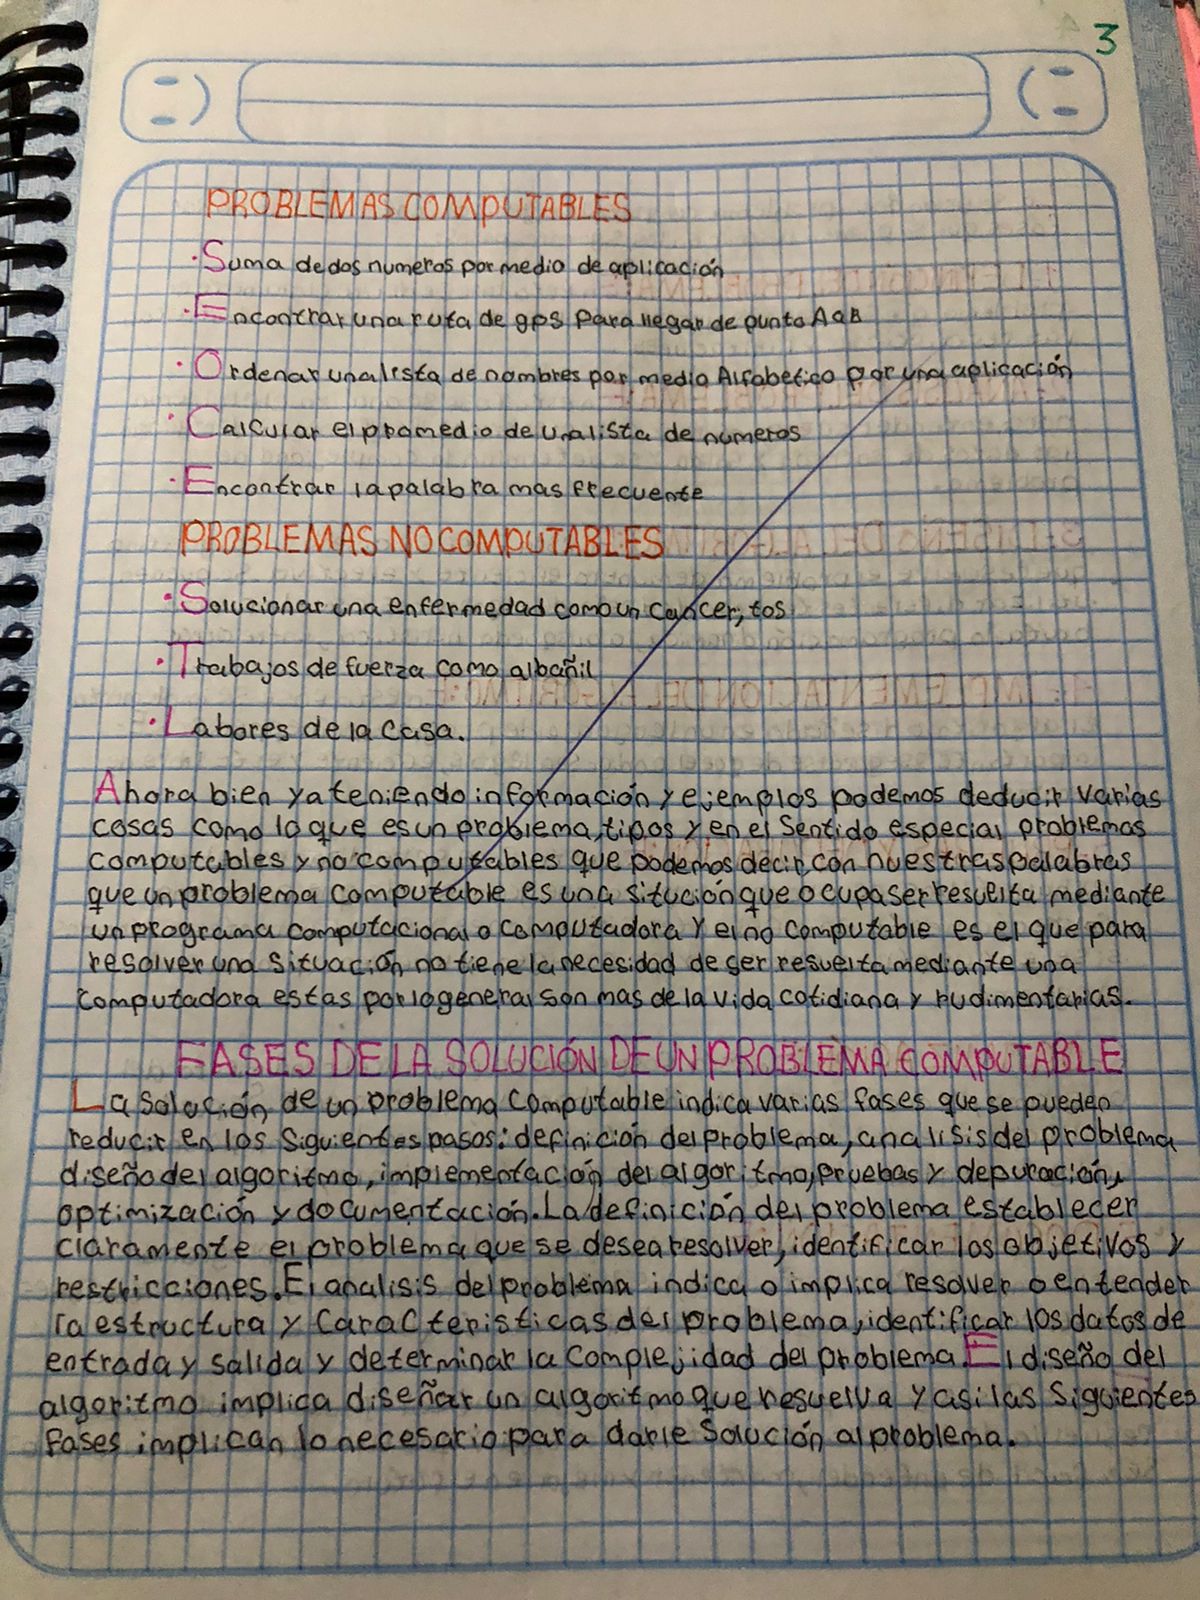 3
PROBLEMAS COMPUTABLES
·Suma de dos numeros por medio de aplicación
·Encontrar una ruta de gps para llegar de punto A a B
·Ordenar una lista de nombres por medio Alfabetico por una aplicación
·Calcular el promedio de una lista de numeros
·Encontrar la palabra mas frecuente
PROBLEMAS NO COMPUTABLES
·Solucionar una enfermedad como un cancer, tos
·Trabajos de fuerza como albañil
·Labores de la casa.
Ahora bien ya teniendo información y ejemplos podemos deducir varias
cosas como lo que es un problema, tipos y en el sentido especial problemas
computables y no computables que podemos decir, con nuestras palabras
que un problema computable es una situción que ocupa ser resuelta mediante
un programa computacional o computadora y el no computable es el que para
resolver una situación no tiene la necesidad de ser resuelta mediante una
computadora estas por lo general son mas de la vida cotidiana y rudimentarias.
FASES DE LA SOLUCIÓN DE UN PROBLEMA COMPUTABLE
La solución de un problema computable indica varias fases que se pueden
reducir en los siguientes pasos: definición del problema, analisis del problema
diseño del algoritmo, implementación del algoritmo, pruebas y depuración,
optimización y documentación. La definición del problema establecer
claramente el problema que se desea resolver, identificar los objetivos y
restricciones. El analisis del problema indica o implica resolver o entender
la estructura y caracteristicas del problema, identificar los datos de
entrada y salida y determinar la complejidad del problema. El diseño del
algoritmo implica diseñar un algoritmo que resuelva y asi las siguientes
fases implican lo necesario para darle solución al problema.